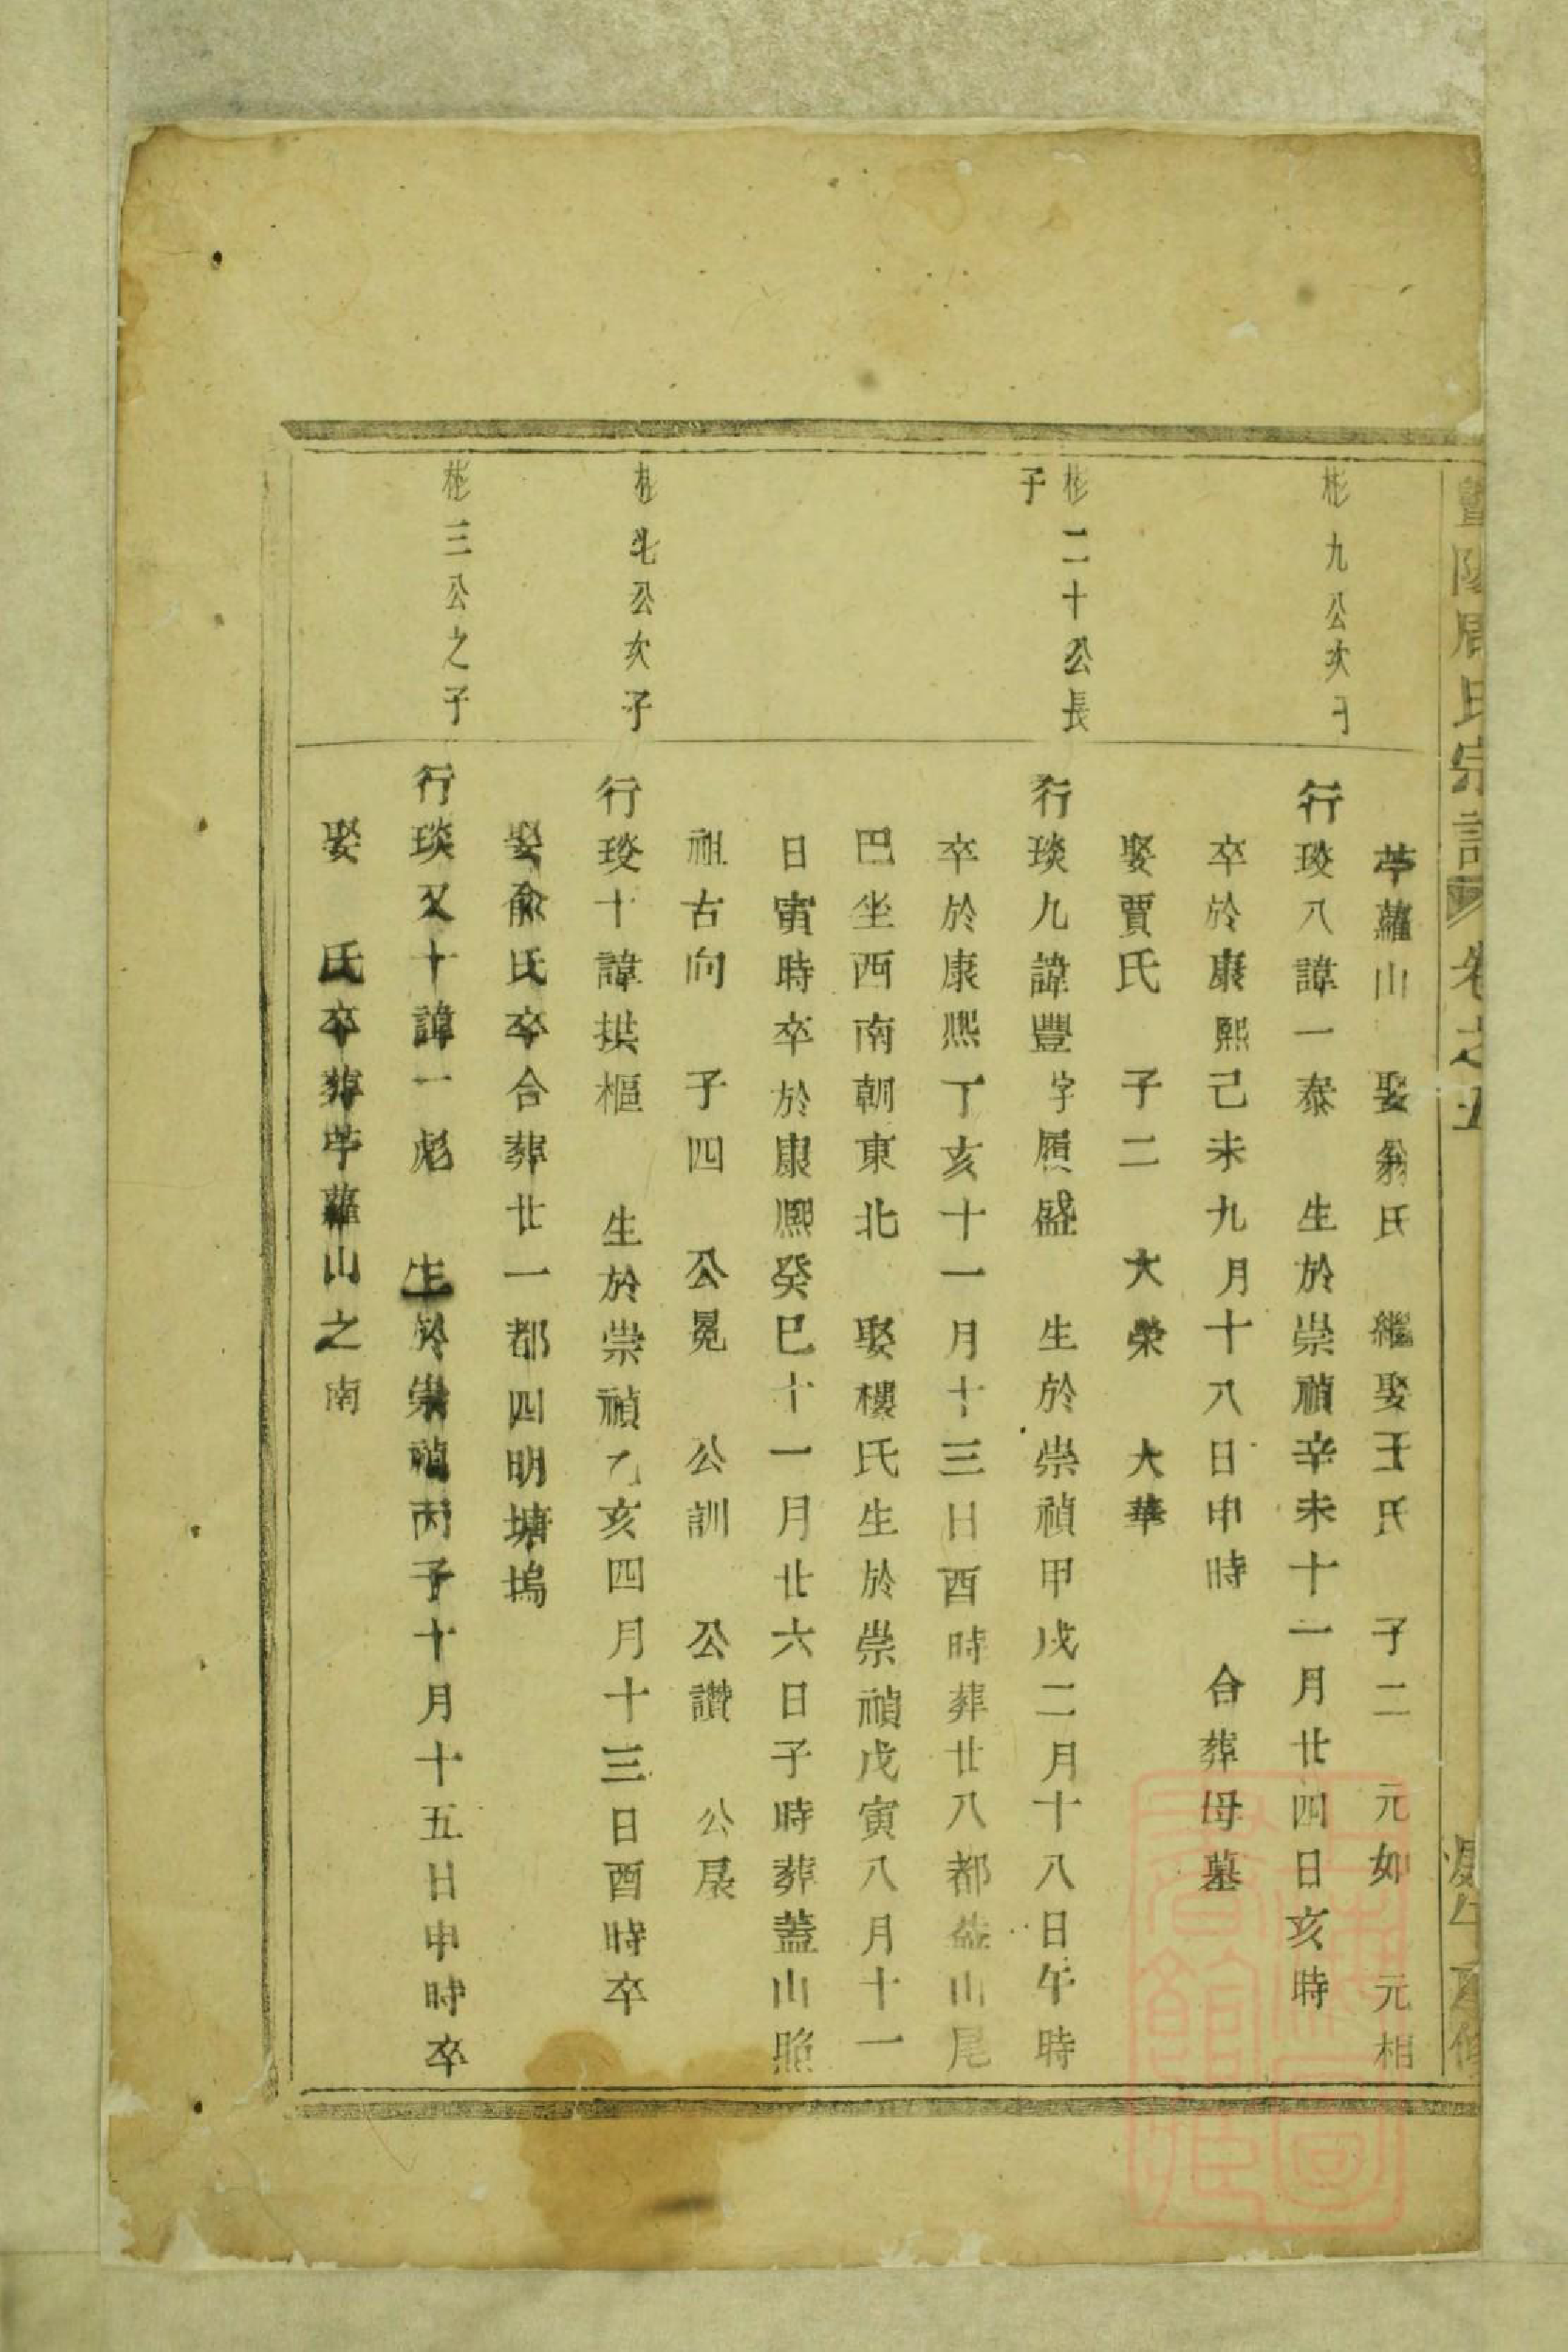 暨陽周氏宗譜 卷之五
苧蘿山 娶翁氏 繼娶王氏 子二 元如 元相
彬九公次子
行琰八諱一泰 生於崇禎辛未十一月廿四日亥時
卒於康熙己未九月十八日申時 合葬母墓
娶賈氏 子二 大榮 大華
彬二十公長
子
行琰九諱豐字履盛 生於崇禎甲戌二月十八日午時
卒於康熙丁亥十一月十三日酉時葬廿八都益山尾
巴坐西南朝東北 娶樓氏生於崇禎戊寅八月十一
日寅時卒於康熙癸巳十一月廿六日子時葬蓋山照
祖古向 子四 公冕 公訓 公讚 公
彬七公次子
行琰十諱拱樞 生於崇禎乙亥四月十三日酉時卒
娶俞氏卒合葬廿一都四明塘塢
彬三公之子
行琰又十諱一彪 生於崇禎丙子十月十五日申時卒
娶 氏卒葬苧蘿山之南
上海圖書館藏